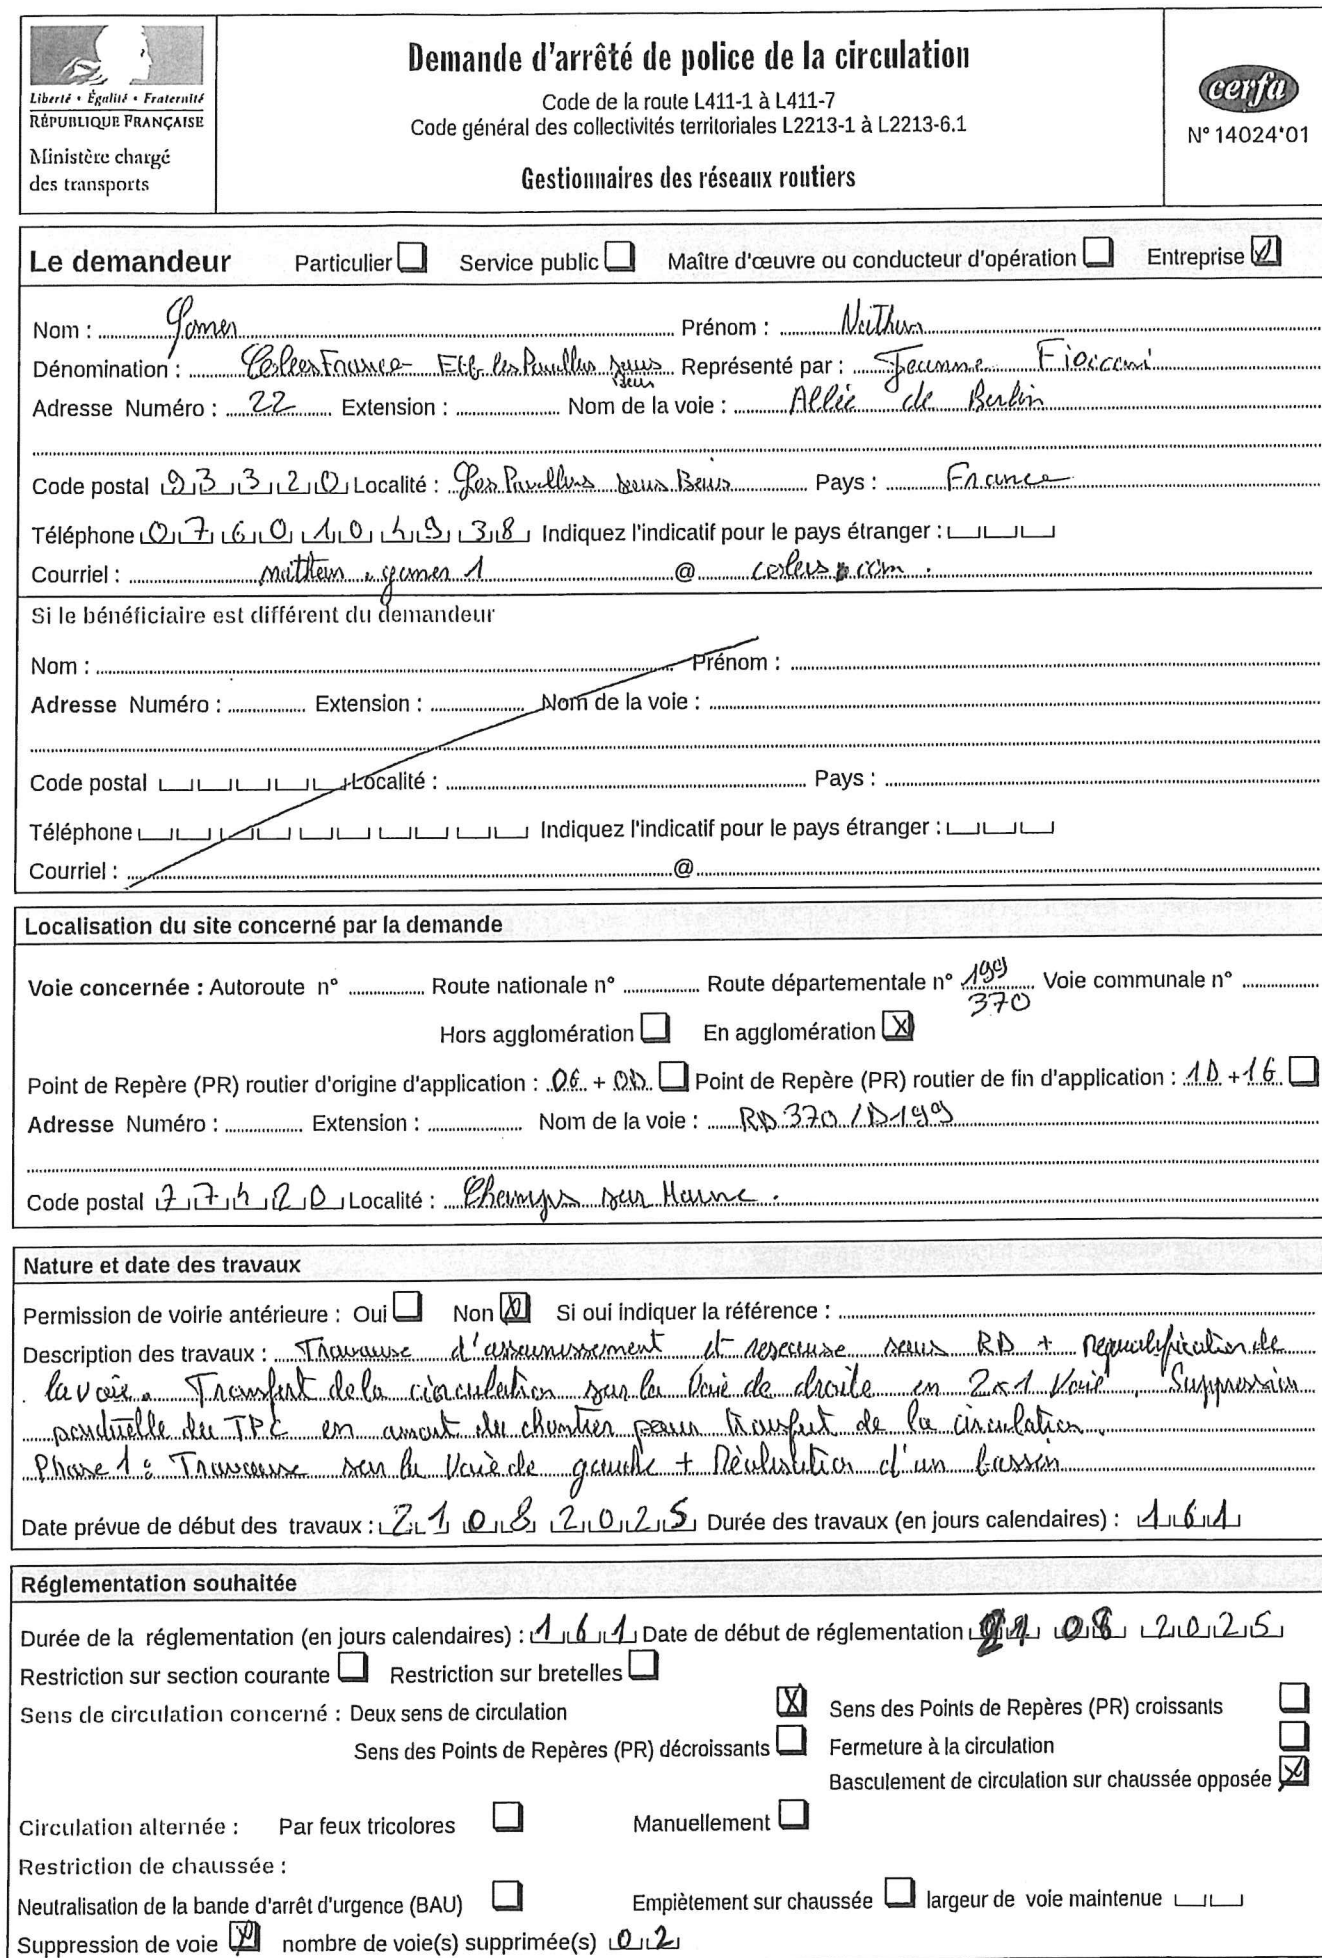 Liberté • Égalité • Fraternité
RÉPUBLIQUE FRANÇAISE
Ministère chargé
des transports
Demande d'arrêté de police de la circulation
Code de la route L411-1 à L411-7
Code général des collectivités territoriales L2213-1 à L2213-6.1
Gestionnaires des réseaux routiers
cerfa
N° 14024*01
Le demandeur Particulier Service public Maître d'œuvre ou conducteur d'opération Entreprise
Nom : Prénom :
Dénomination : France Etb les Pavillons sous Bois Représenté par : Jeanne
Adresse Numéro : 22 Extension : Nom de la voie : Allée de Berlin
Code postal 93320 Localité : Les Pavillons sous Bois Pays : France
Téléphone 07 60 10 49 38 Indiquez l'indicatif pour le pays étranger :
Courriel : @ .com.
Si le bénéficiaire est différent du demandeur
Nom : Prénom :
Adresse Numéro : Extension : Nom de la voie :
Code postal Localité : Pays :
Téléphone Indiquez l'indicatif pour le pays étranger :
Courriel : @
Localisation du site concerné par la demande
Voie concernée : Autoroute n° Route nationale n° Route départementale n° 199 Voie communale n°
370
Hors agglomération En agglomération X
Point de Repère (PR) routier d'origine d'application : + Point de Repère (PR) routier de fin d'application : +16
Adresse Numéro : Extension : Nom de la voie : RD 370 / D199
Code postal 77420 Localité : Champs sur Marne.
Nature et date des travaux
Permission de voirie antérieure : Oui Non X Si oui indiquer la référence :
Description des travaux : Travaux d'assainissement et reseaux sous RD + requalification de
la voie. Transfert de la circulation sur la Voie de droite en 2x1 Voie. Suppression
ponctuelle du TPC en amont du chantier pour transfert de la circulation.
Phase 1 : Travaux sur la Voie de gauche + Réalisation d'un bassin
Date prévue de début des travaux : 21 08 2025 Durée des travaux (en jours calendaires) : 161
Réglementation souhaitée
Durée de la réglementation (en jours calendaires) : 161 Date de début de réglementation 21 08 2025
Restriction sur section courante Restriction sur bretelles
Sens de circulation concerné : Deux sens de circulation X Sens des Points de Repères (PR) croissants
Sens des Points de Repères (PR) décroissants Fermeture à la circulation
Basculement de circulation sur chaussée opposée X
Circulation alternée : Par feux tricolores Manuellement
Restriction de chaussée :
Neutralisation de la bande d'arrêt d'urgence (BAU) Empiètement sur chaussée largeur de voie maintenue
Suppression de voie X nombre de voie(s) supprimée(s) 02